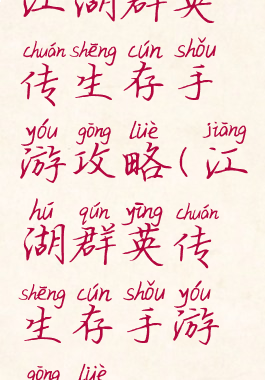 江湖群英
chuán shēng cún shǒu
传生存手
yóu gōng lüè jiāng
游攻略(江
hú qún yīng chuán
湖群英传
shēng cún shǒu yóu
生存手游
gōng lüè